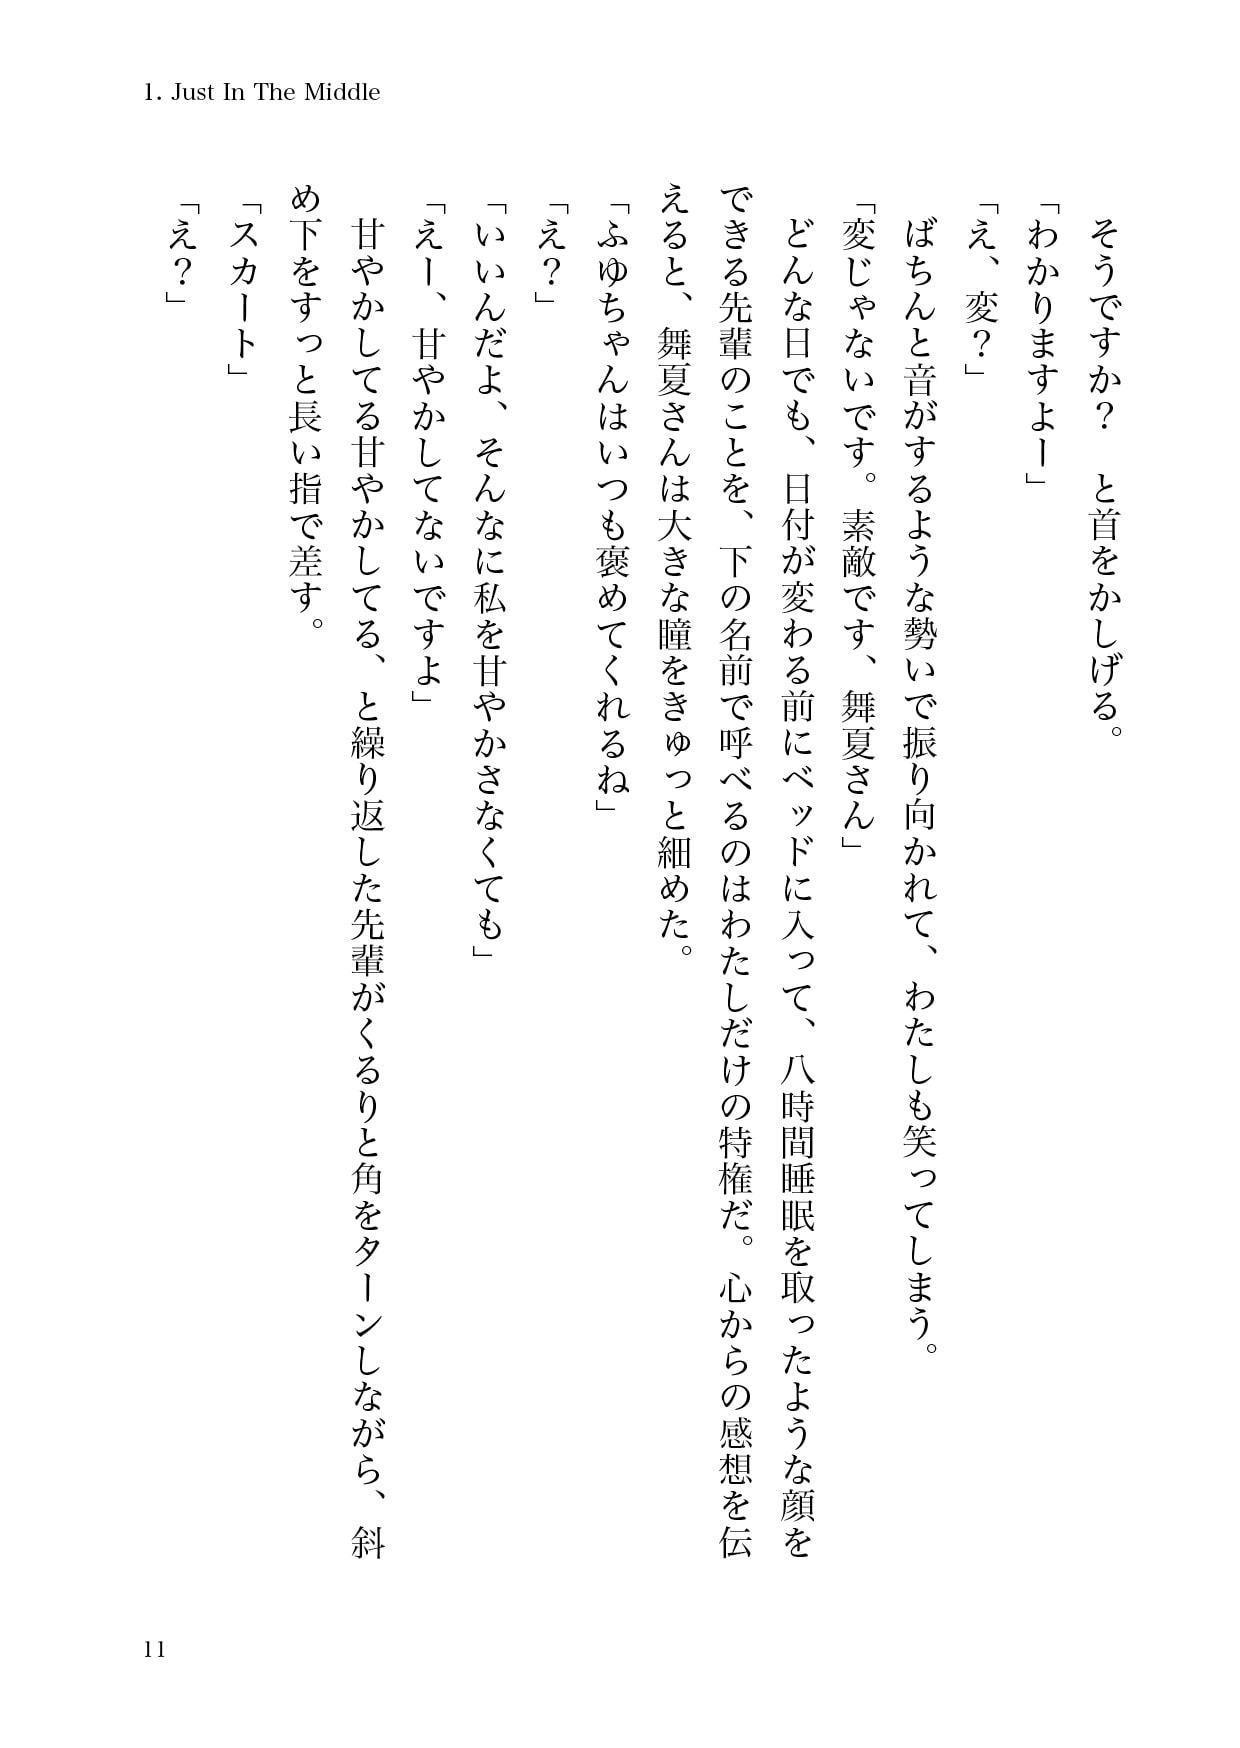 1. Just In The Middle
　そうですか？　と首をかしげる。
「わかりますよー」
「え、変？」
　ばちんと音がするような勢いで振り向かれて、わたしも笑ってしまう。
「変じゃないです。素敵です、舞夏さん」
　どんな日でも、日付が変わる前にベッドに入って、八時間睡眠を取ったような顔を
できる先輩のことを、下の名前で呼べるのはわたしだけの特権だ。心からの感想を伝
えると、舞夏さんは大きな瞳をきゅっと細めた。
「ふゆちゃんはいつも褒めてくれるね」
「え？」
「いいんだよ、そんなに私を甘やかさなくても」
「えー、甘やかしてないですよ」
　甘やかしてる甘やかしてる、と繰り返した先輩がくるりと角をターンしながら、斜
め下をすっと長い指で差す。
「スカート」
「え？」
11